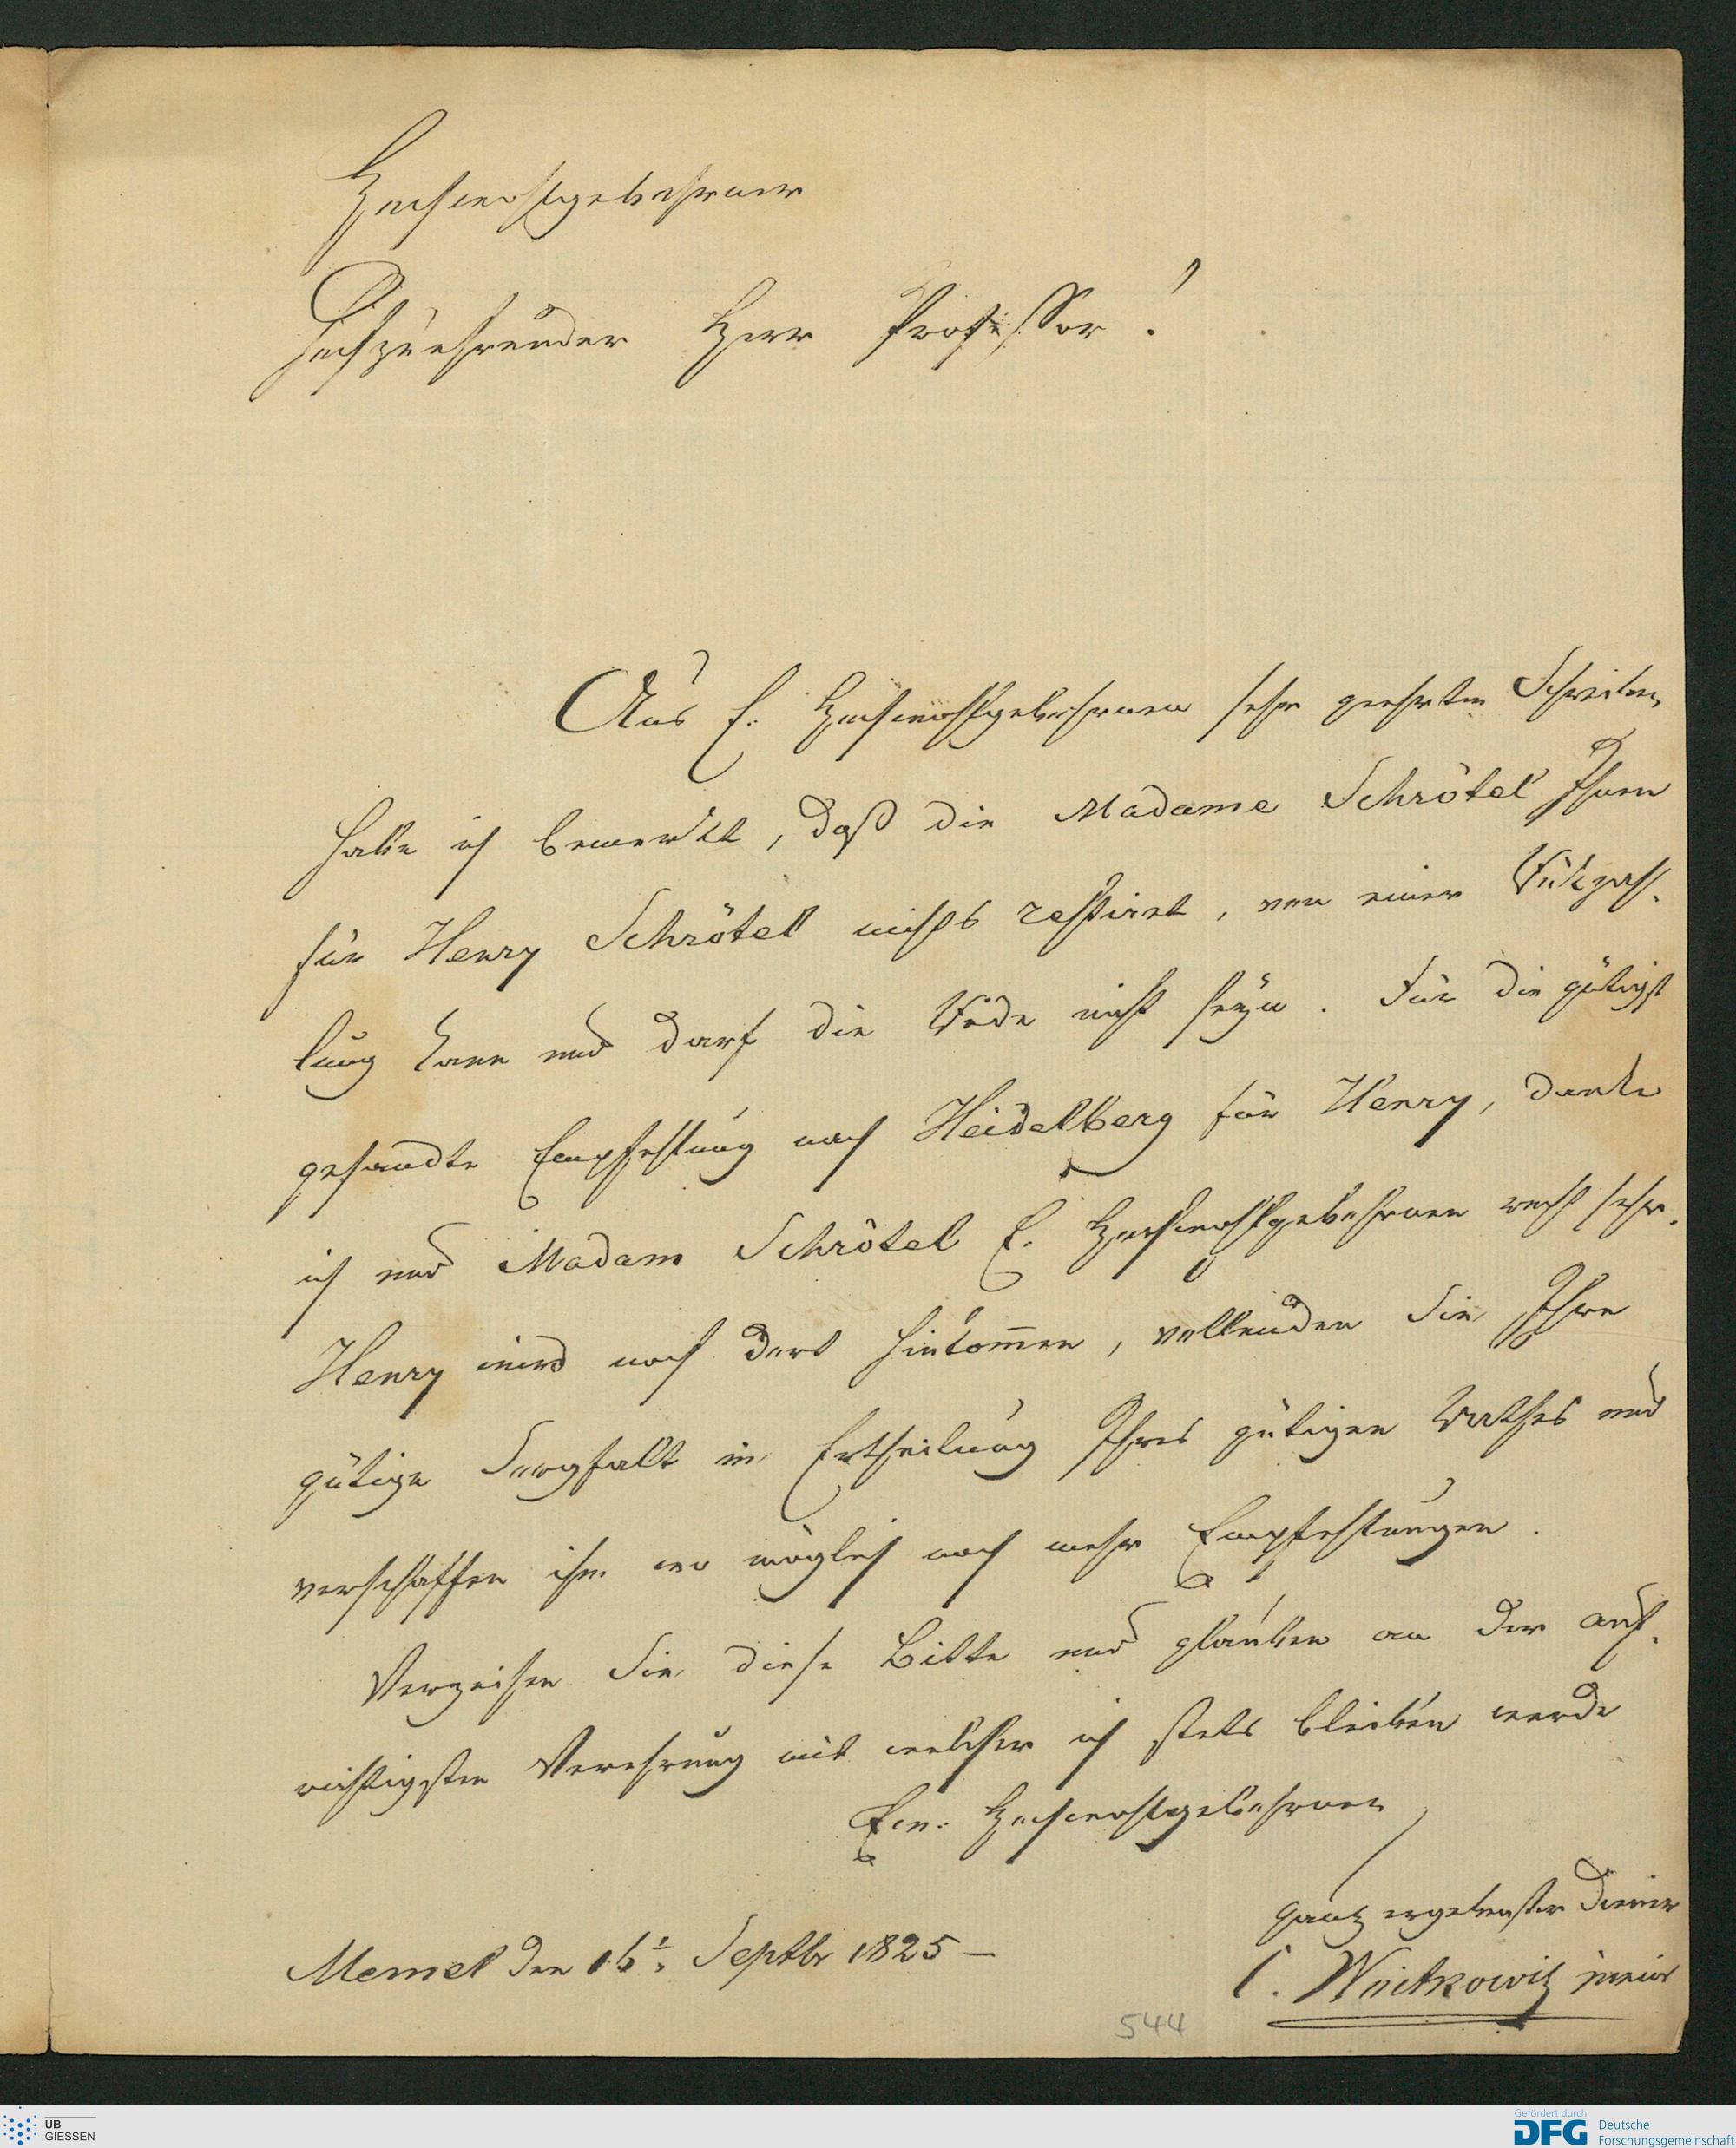 Hochwohlgebohrner
Hochzuehrender Herr Professor!
Aus E. Hochwohlgebohrnen sehr geehrten Schreiben
habe ich bemerkt, daß die Madame Schrötel Ihnen
für Henry Schrötel nichts restiret, von einer Rükzah-
lung kann und darf die Rede nicht seyn. Für die gütigst
gesandte Empfehlung nach Heidelberg für Henry, danke
ich und Madam Schrötel E. Hochwohlgebohrnen recht sehr.
Henry wird noch dort hinkom̄en, vollenden Sie Ihre
gütige Sorgfalt in Ertheilung Ihres gütigen Rathes und
verschaffen ihm wo möglich noch mehr Empfehlungen.
Verzeihen Sie diese Bitte und glauben an der auf-
richtigsten Verehrung mit welcher ich stets bleiben werde
Ew. Hochwohlgebohrnen
ganz ergebenster Diener
Memel den 16t. Septbr 1825 –
Woitkowitz
544
UB
GIESSEN
Gefördert durch
DFG Deutsche
Forschungsgemeinschaft